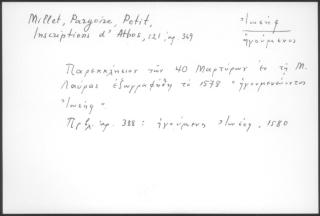 Millet, Pargoire, Petit,
Inscriptions d'Athos, 121, ἀρ. 369
Ἰωσὴφ
ἡγούμενος
Παρεκκλήσιον τῶν 40 Μαρτύρων ἐν τῇ Μ.
Λαύρᾳ ἐζωγραφήθη τὸ 1578 "ἡγουμενεύοντος
Ἰωσήφ"
Πρβλ. ἀρ. 388: ἡγούμενος Ἰωσήφ, 1580